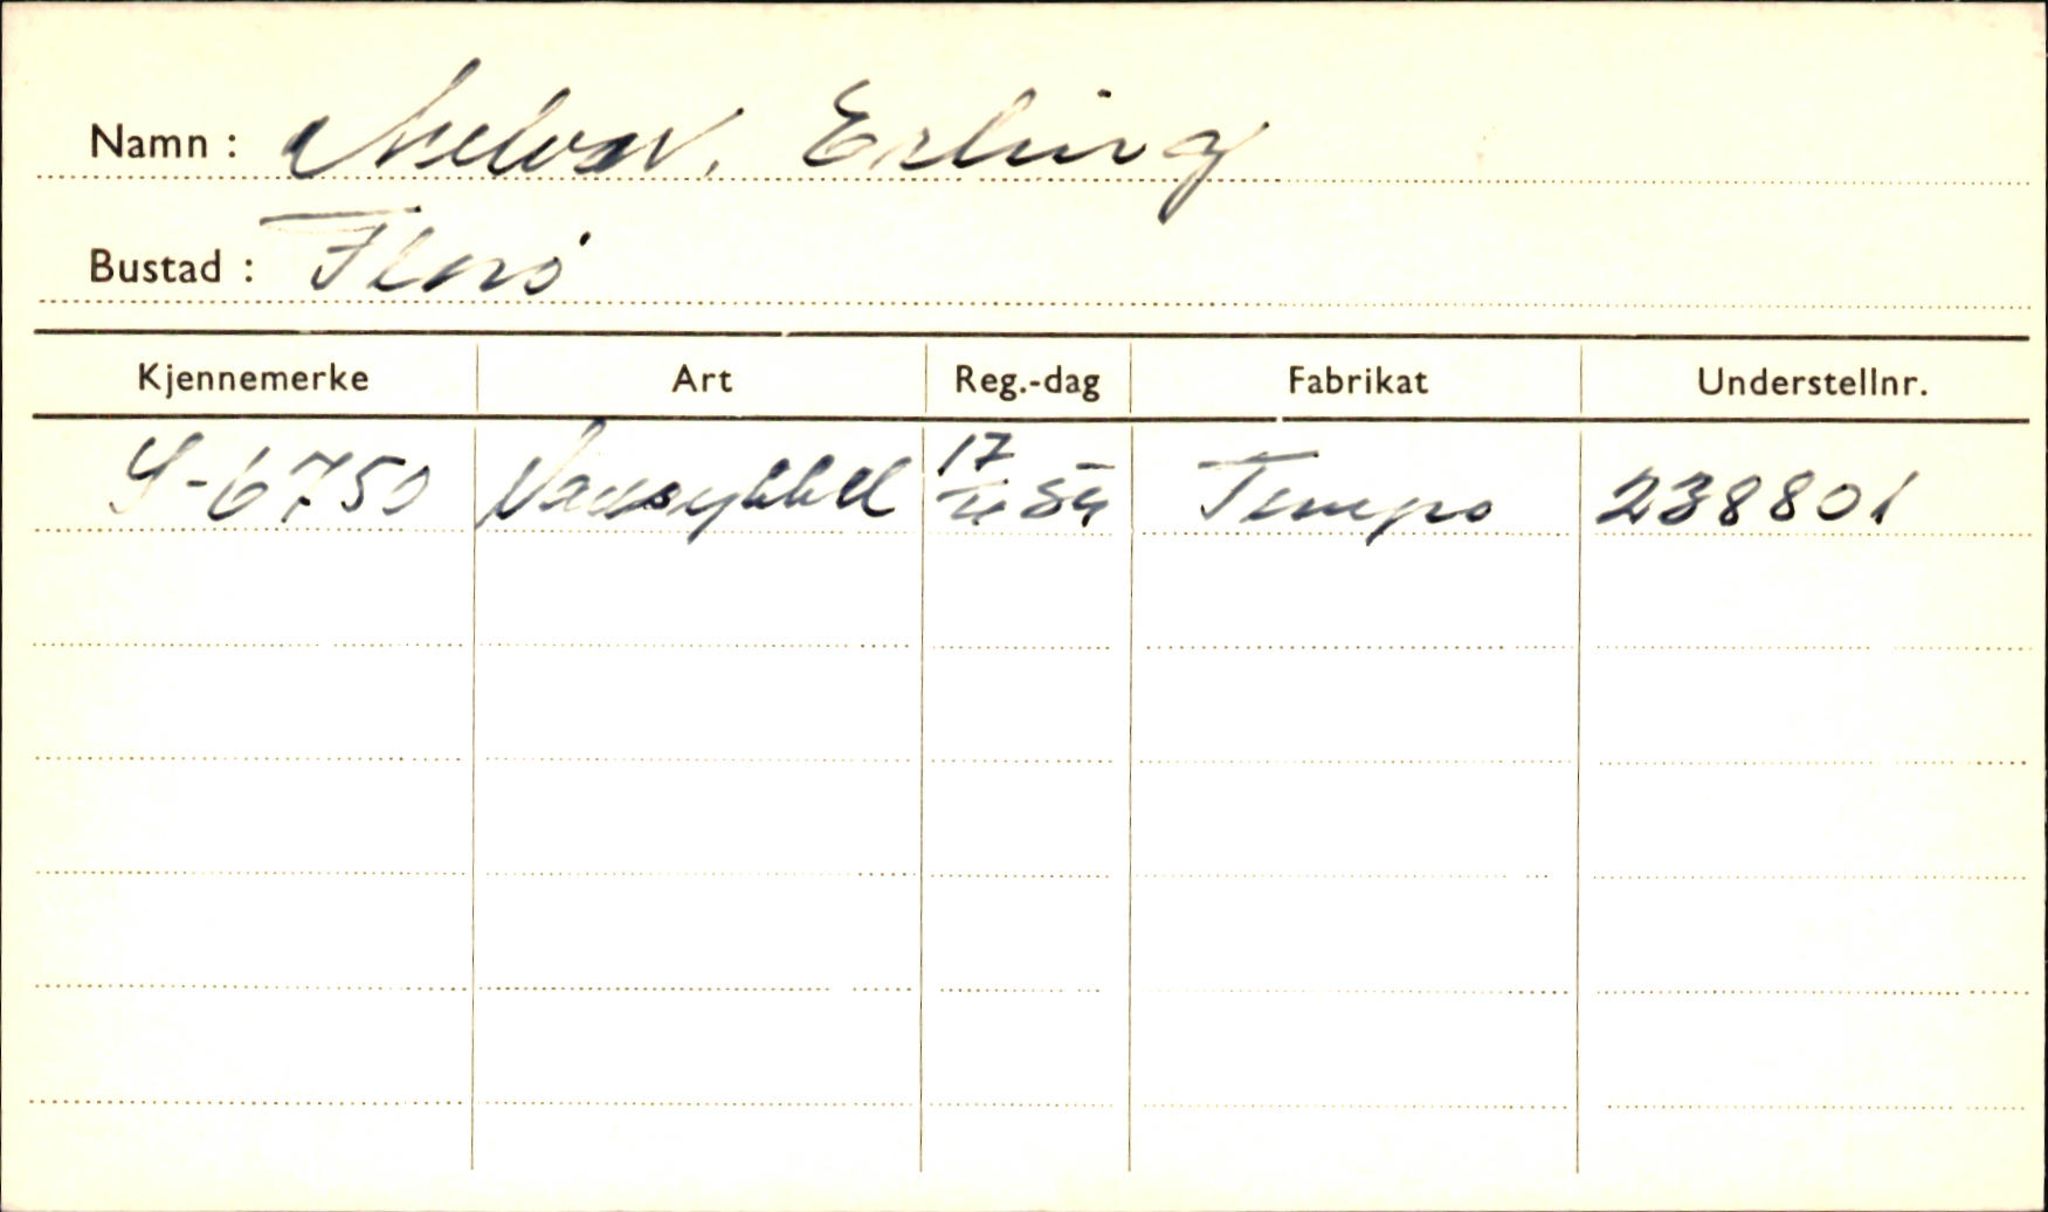 Namn : Melvær, Erling
Bustad : Florø
Kjennemerke Art Reg.-dag Fabrikat Understellnr.
S-6750 Varesykkel 17/ 54 Tempo 238801